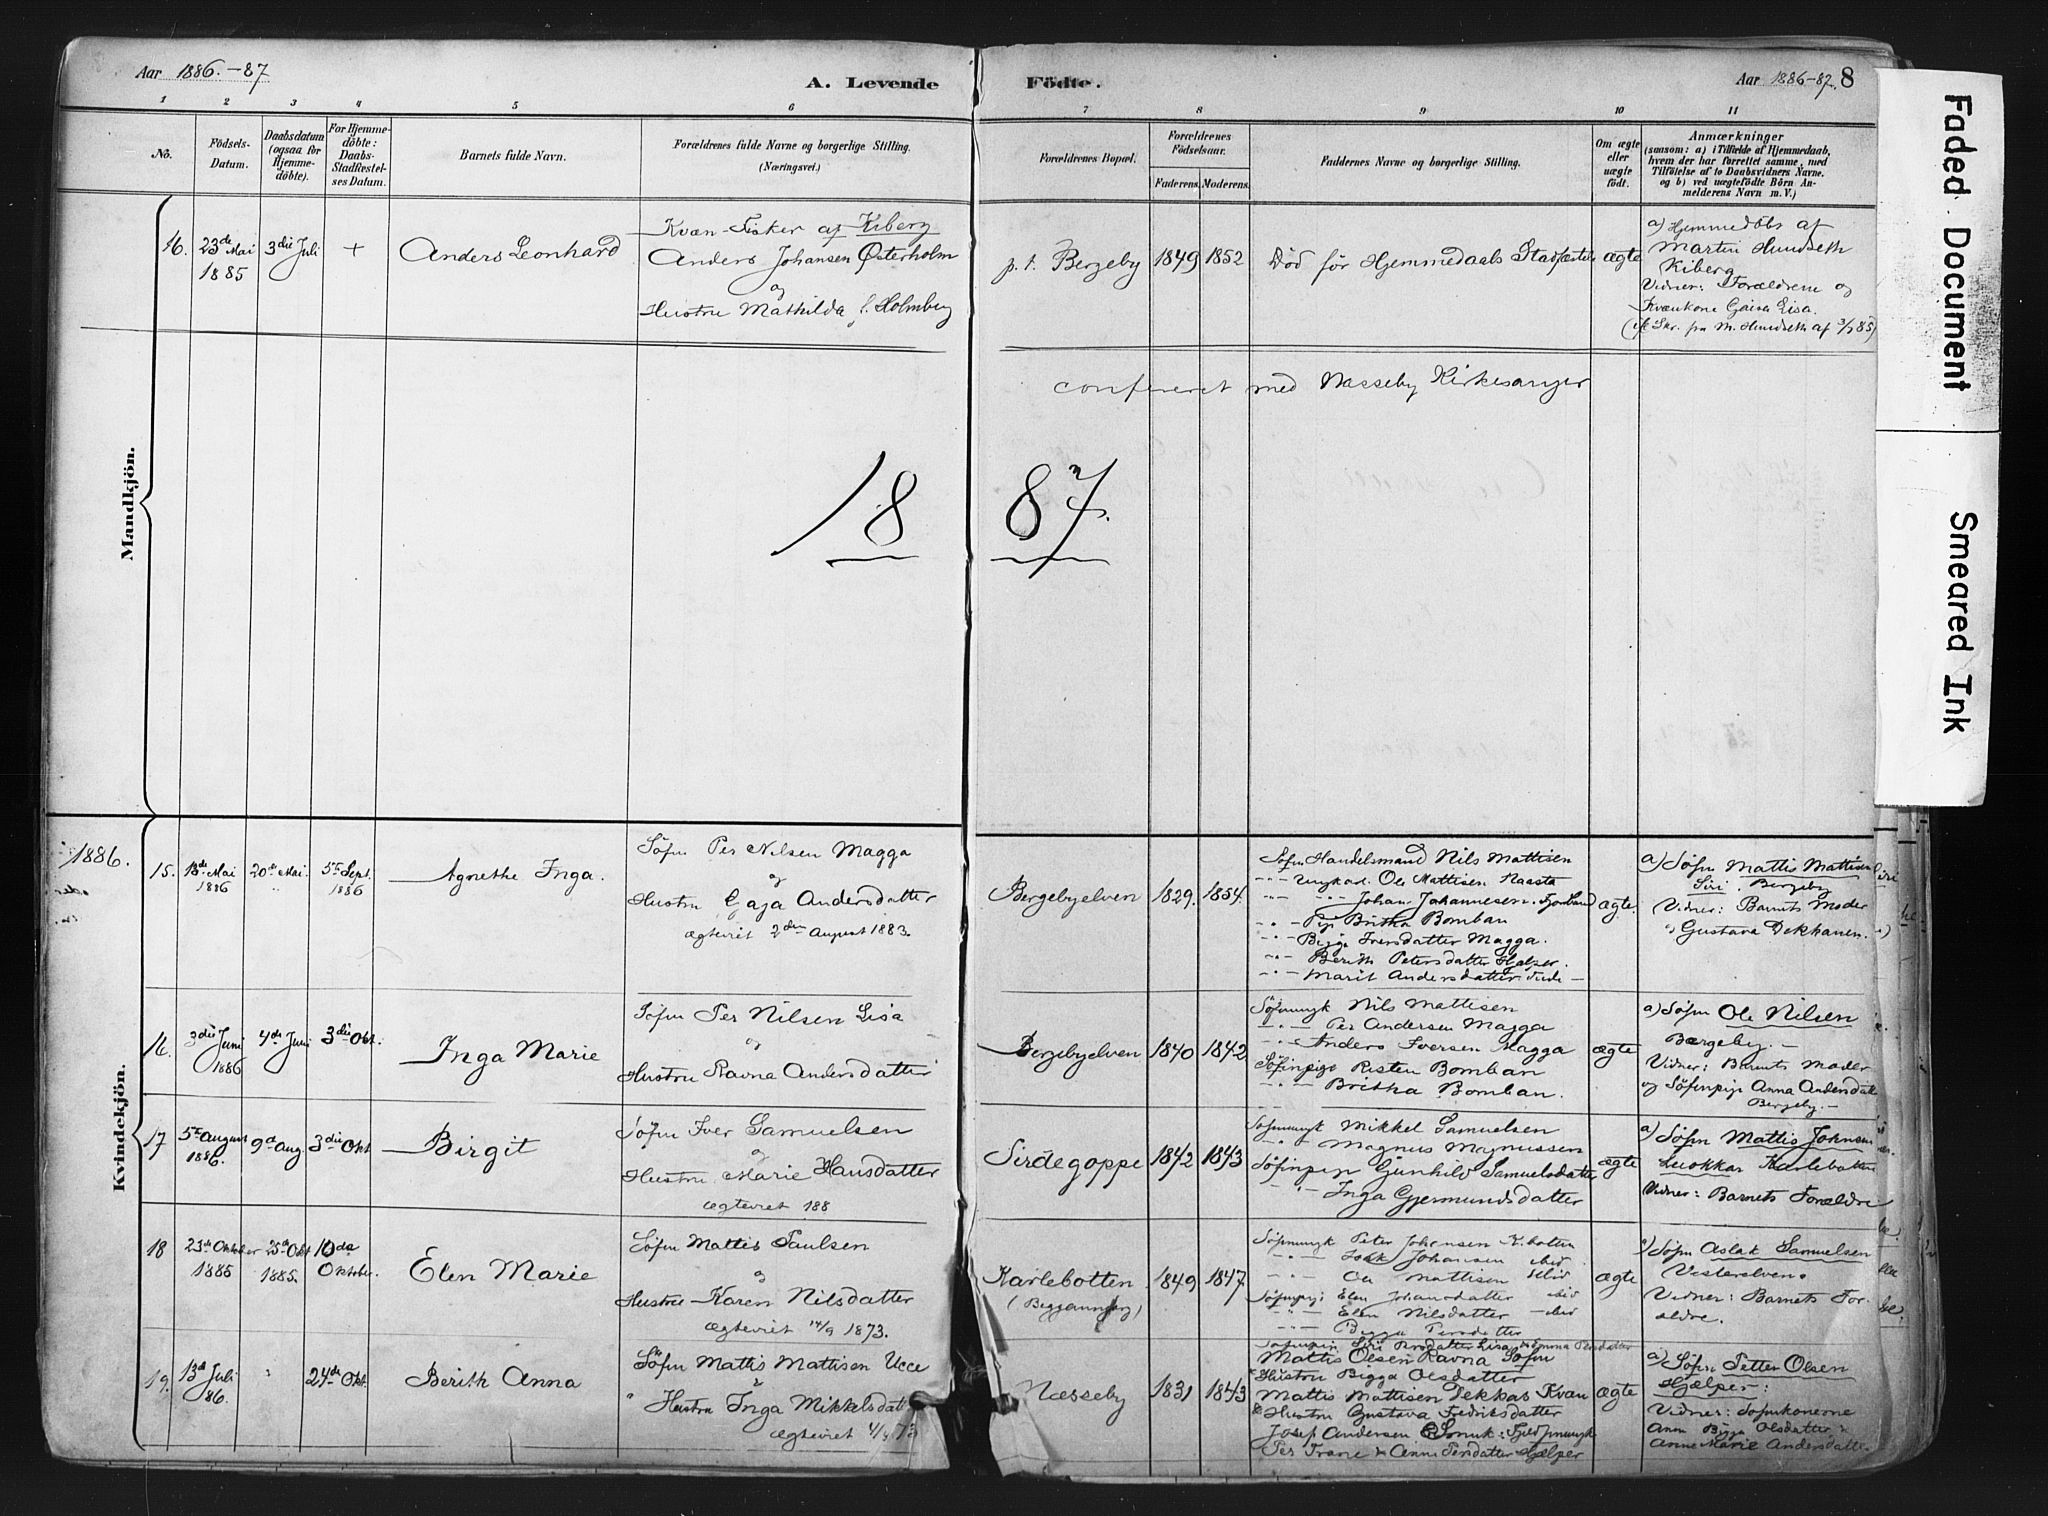 Aar 1886.-87
A. Levende Födte.
Aar 1886-87. 8
1 2 3 4 5 6 7 8 9 10 11
No.
Födsels-Datum.
Daabsdatum (ogsaa for Hjemme-döbte).
For Hjemme-döbte: Daabs-Stadfæstel-ses Datum.
Barnets fulde Navn.
Forældrenes fulde Navne og borgerlige Stilling. (Næringsvei.)
Forældrenes Bopæl.
Forældrenes Födselsaar.
Faderens. Moderens.
Faddernes Navne og borgerlige Stilling.
Om ægte eller uægte födt.
Anmærkninger
(saasom: a) i Tilfælde af Hjemmedaab,
hvem der har forrettet samme, med
Tilföielse af to Daabsvidners Navne.
og b) ved uægtefödte Börn An-
melderens Navn m.V.)
Mandkjön.
16. 23de Mai 1885 3die Juli + Anders Leonhard
Kvæn-Fisker af Kiberg
Anders Johansen Østerholm
og
Hustru Mathilda f. Holmberg
p. t. Bergeby 1849 1852 Død før Hjemmedaabs Stadfæstelse ægte
a) Hjemmedøbt af
Martin Hundseth
Kiberg
Vidner: Forældrene og
Kvænkone Gaisa Eisa.
(cfr Skr. fra M. Hundseth af 3/7 85)
confereret med Nasseby Kirkesanger
1887.
Kvindekjön.
1886.
15. 13de Mai 1886 20de Mai 5te Sept. 1886 Agnethe Inga.
Søfn Per Nilsen Magga
og
Hustru Gaja Andersdatter
ægteviet 2den August 1883.
Bergebyelven 1829. 1854.
Søfn Handelsmand Nils Mattisen
-"- Ungkarl Ole Mattisen Naasta
-"- -"- Johan Johannesen
-"- Pige Britha Bomban
-"- Bigga Iversdatter Magga.
-"- Berith Petersdatter Hjelper.
-"- Marit Andersdatter
ægte.
a) Søfn Mattis Mattisen
Siri, Bergeby
Vidner: Barnets Moder
og Gustava Dekkanen.
16. 3die Juni 1886 4de Juni 3die Okt. Inga Marie
Søfn Per Nilsen Lisa
og
Hustru Ravna Andersdatter
Bergebyelven 1840 1842
Søfinungk Nils Mattisen
-"- Per Andersen Magga
-"- Anders Iversen Magga
Søfinpige Risten Bomban
-"- Britha Bomban.
ægte
a) Søfn Ole Nilsen
Bergeby.-
Vidner: Barnets Moder
og Søfinpige Anna Andersdat
Bergeby.-
17 5te August 1886. 9de Aug. 3die Okt Birgit
Søfn Iver Samuelsen
og
Hustru Marie Hansdatter
ægteviet 188
Sirdegoppe 1842 1843
Søfinungk Mikkel Samuelsen
-"- Magnus Magnussen
Søfinpige Gunhild Samuelsdatter
-"- Inga Gjermundsdatter
ægte
a) Søfn Mattis Johnsen
Luokkar Karlebotten
Vidner: Barnets Forældre
18 23de Oktober 1885 25de Okt 1885. 10de Oktober. Elen Marie
Søfn Mattis Paulsen
og
Hustru Karen Nilsdatter
ægteviet 14/9 1873.
Karlebotten 1849 1847
Søfinungk Peter Johansen K.botten
-"- Johansen ibid
-"- Ole Mattisen ibid
Søfinpige Elen Johansdatter ibid
-"- Elen Nilsdatter - ibid
-"- Bigga Persdatter
ægte
a) Søfn Aslak Samuelsen
Vesterelven.
Vidner: Barnets For-
ældre.
19. 13de Juli 86. " 24de Okt. Berith Anna
Søfn Mattis Mattisen Ucce
&
Hustru Inga Mikkelsdatt
ægteviet 4/4 73
Næsseby 1831 1843
Søfinpige Siri Persdatter Lisa & Emma Persdatter
Mattis Olsen Ravna Søfn
& Hustru Bigga Olsdatter
Mattis Mattisen Dekkas Kvæn
& Hustru Gustava Fredriksdatter
Josef Andersen Smuk: Fjeldfinungk
Per Trane & Anne Persdatter Hjelper
ægte
a) Søfn Petter Olsen
Hjælper:
Vidner: Søfinkonerne
Anne Bigga Olsdatter &
Anne Marie Andersdatte
Faded Document
Smeared Ink